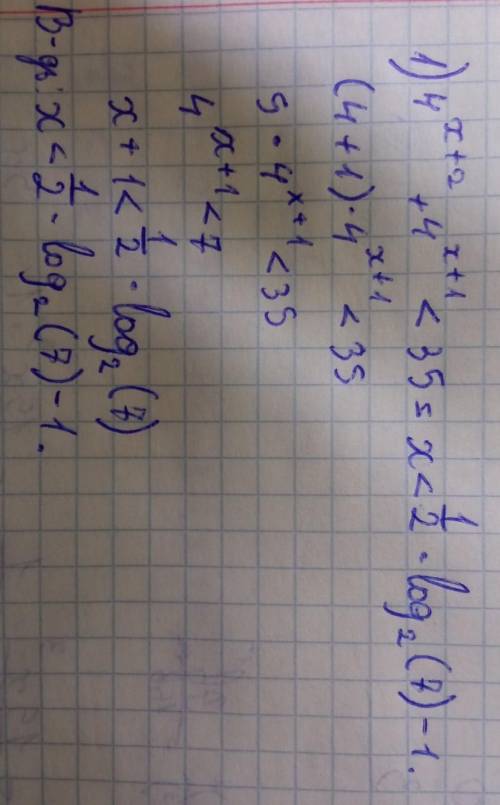 1) 4^{x+2} + 4^{x+1} < 35 = x < \frac{1}{2} \cdot log_2(7) - 1.
(4+1) \cdot 4^{x+1} < 35
5 \cdot 4^{x+1} < 35
4^{x+1} < 7
x + 1 < \frac{1}{2} \cdot log_2(7)
В-дь: x < \frac{1}{2} \cdot log_2(7) - 1.